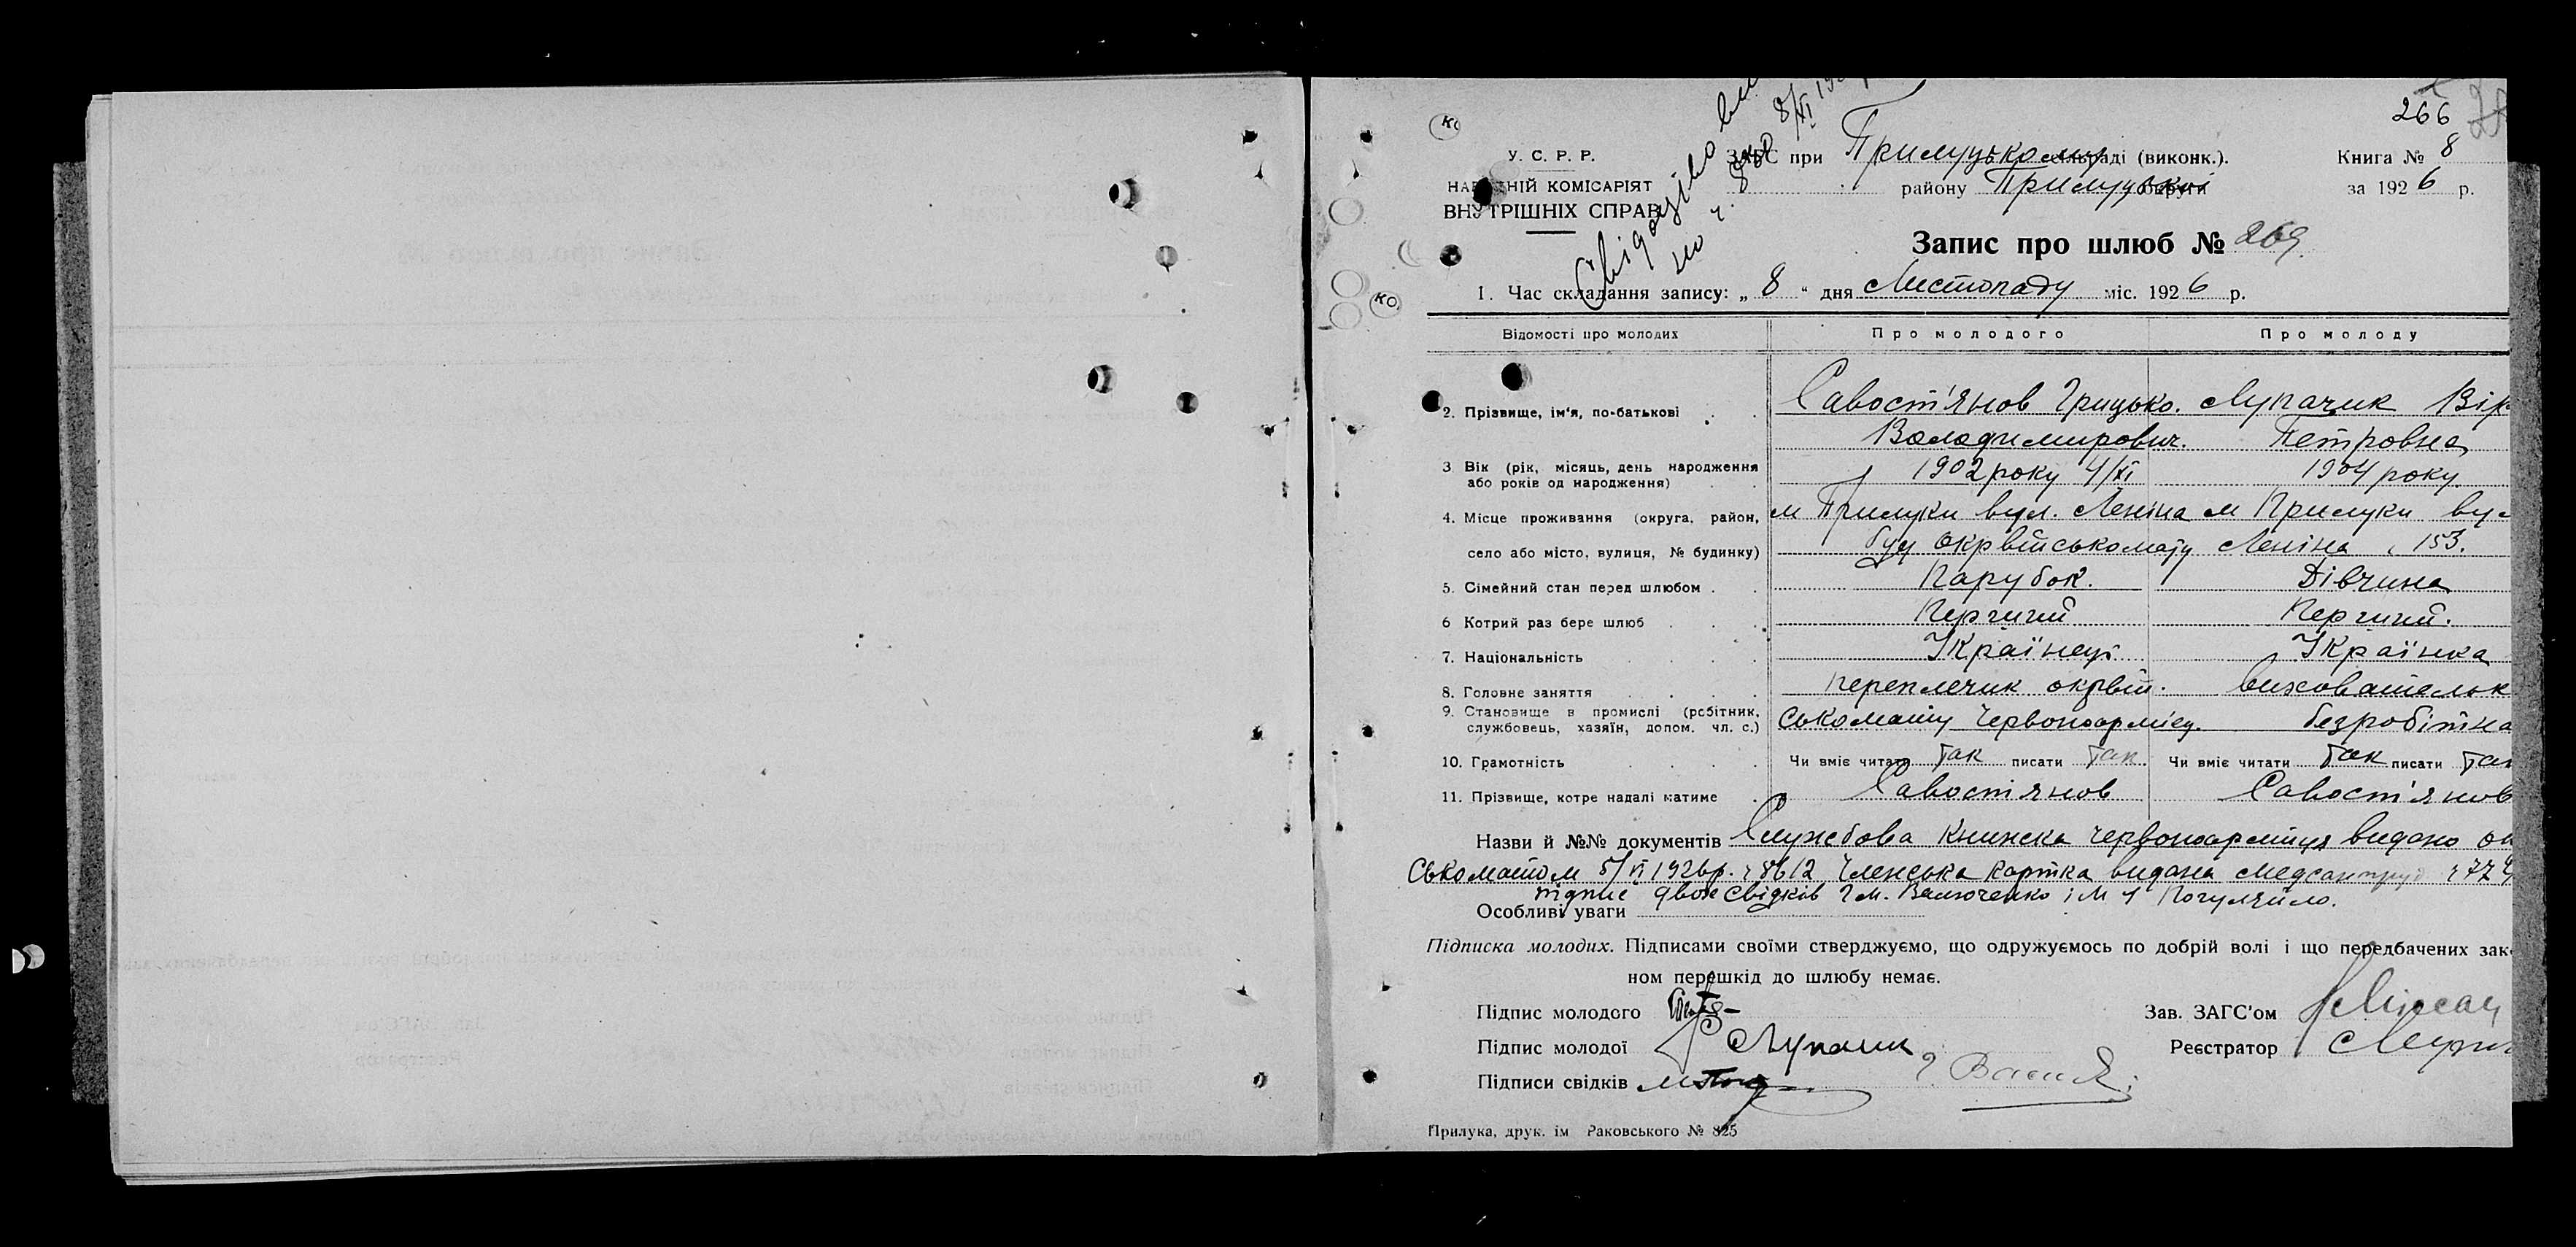 266
У. С. Р. Р.
НАРОДНІЙ КОМІСАРІЯТ
ВНУТРІШНІХ СПРАВ
ЗАГС при Прилуцькому сільраді (виконк.).
району Прилуцької округи
Книга № 8
за 1926 р.
Запис про шлюб № 269.
1. Час складання запису: „ 8 “ дня Листопаду міс. 1926 р.
Відомості про молодих Про молодого Про молоду
2. Прізвище, ім'я, по-батькові Савост'янов Грицько. Лупачик Вір
Володимирович. Петровна
3 Вік (рік, місяць, день народження або років од народження) 1902 року 4/XI 1904 року.
4. Місце проживання (округа, район, м Прилуки вул. Леніна м Прилуки вул
село або місто, вулиця, № будинку) буд Окрвійськомату Леніна 153.
5. Сімейний стан перед шлюбом Парубок. Дівчина
6 Котрий раз бере шлюб Перший Перший.
7. Національність Українець Українка
8. Головне заняття переплечик окрвій. вихователька
9. Становище в промислі (робітник, службовець, хазяїн, допом. чл. с.) ськомату Червоноармієц. безробітна
10. Грамотність Чи вміє читати так писати так. Чи вміє читати так писати так
11. Прізвище, котре надалі матиме Савост'янов Савост'янов
Назви й №№ документів Службова книжка червоноармійця видано ок
ськоматом 5/VI 1926р. ч 8612 Членська картка видана Медсантруд ч 774
підпис двох свідків Г м. Валюченко і М Погуляйло.
Особливі уваги
Підписка молодих. Підписами своїми стверджуємо, що одружуємось по добрій волі і що передбачених зако
ном перешкід до шлюбу немає.
Підпис молодого
Зав. ЗАГС'ом
Підпис молодої Лупачик
Реєстратор
Підписи свідків
Прилука, друк. ім Раковського № 825